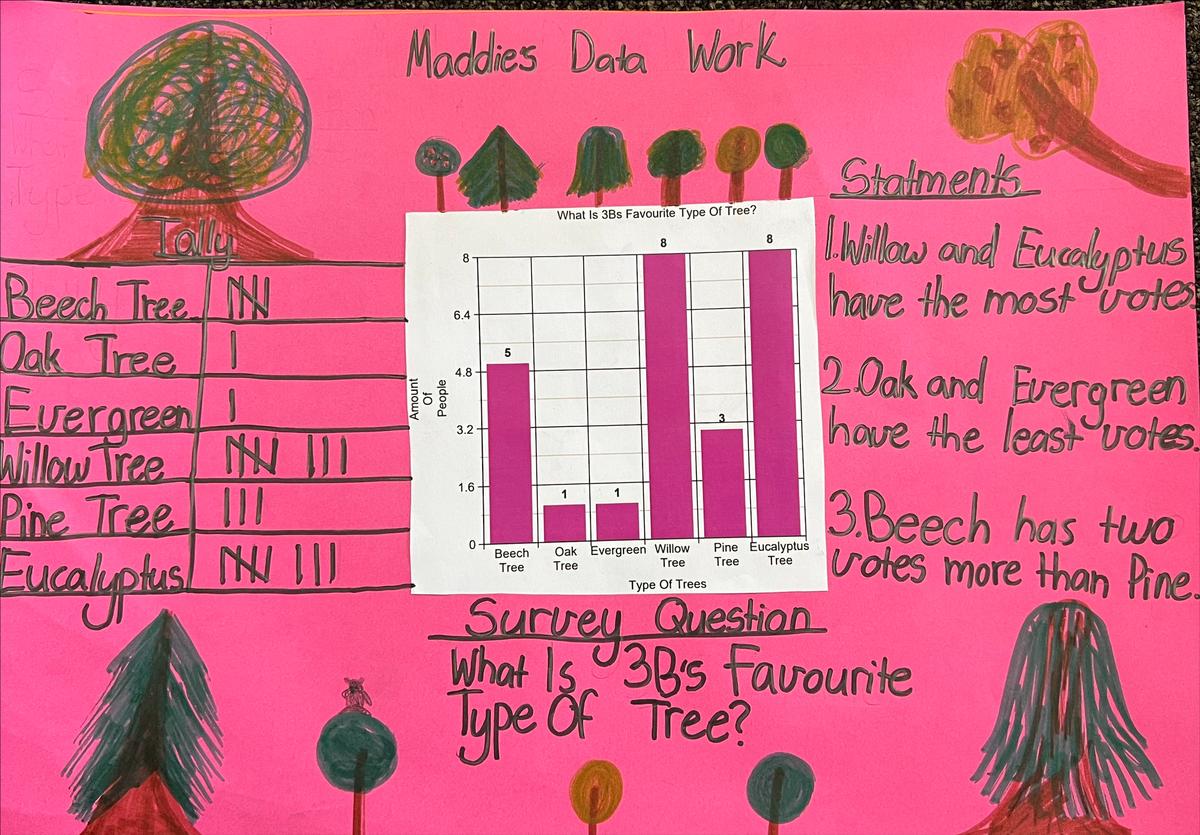 Maddie's Data Work
Tally
Beech Tree
Oak Tree
Evergreen
Willow Tree
Pine Tree
Eucalyptus
What Is 3Bs Favourite Type Of Tree?
Amount
Of
People
8
6.4
4.8
3.2
1.6
0
5
1
1
8
3
8
Beech
Tree
Oak
Tree
Evergreen
Willow
Tree
Pine
Tree
Eucalyptus
Tree
Type Of Trees
Statments
1.Willow and Eucalyptus
have the most votes.
2.Oak and Evergreen
have the least votes.
3.Beech has two
votes more than Pine.
Survey Question
What Is 3B's Favourite
Type Of Tree?